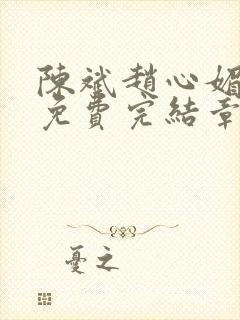 陳斌趙心媚
免費完結章
憂之